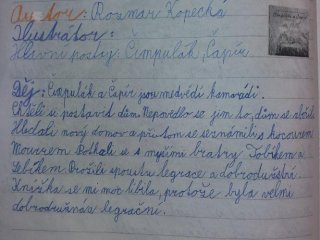 Autor: Rozmar Kopecká
Ilustrátor:
Hlavní postavy: Čimpulák, Čapír
Děj: Čimpulák a Čapír jsou medvědí kamarádi.
Chtěli si postavit dům. Nepovedlo se jim to, dům se zbořil.
Hledali nový domov a přitom se seznámili s kocourem
Mourrem. Potkali se s myšími bratry Tobíkem a
Bebíkem. Prožili spoustu legrace a dobrodružství.
Knížka se mi moc líbila, protože byla velmi
dobrodružná a legrační.